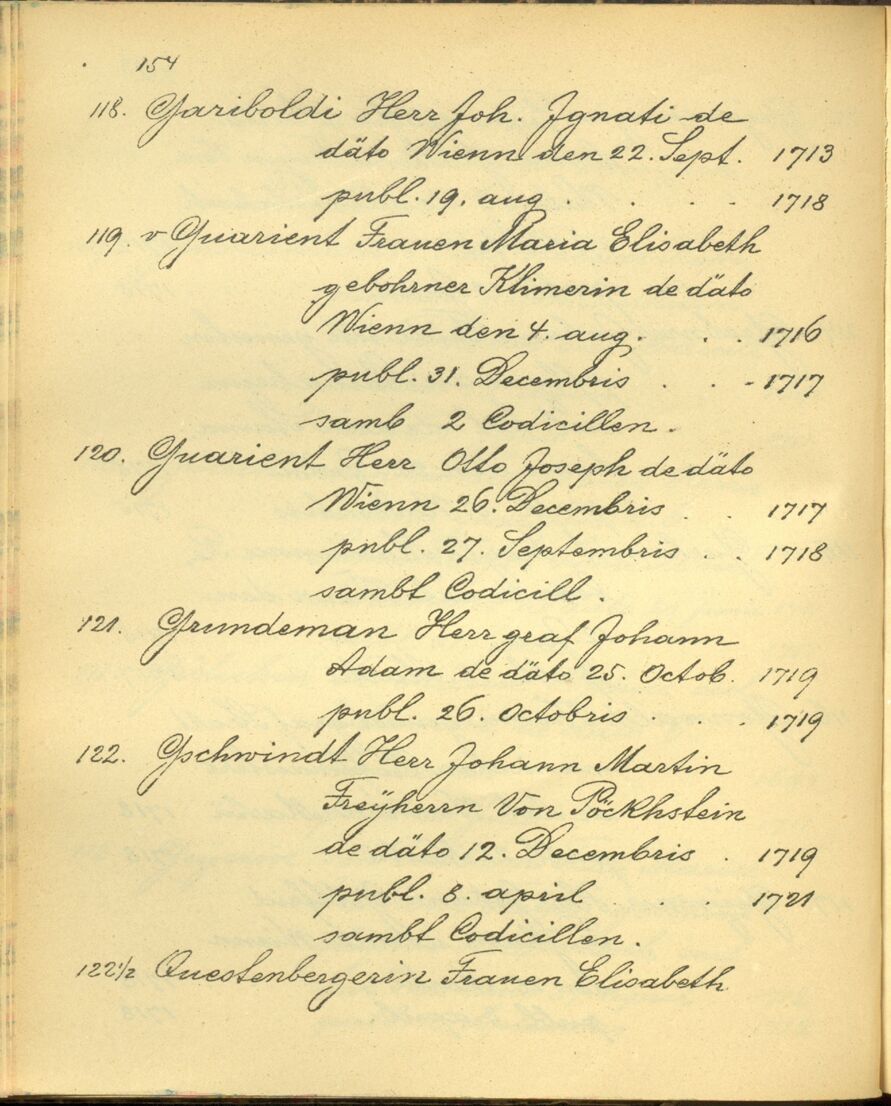 154
118. Gariboldi Herr Joh. Ignati de
däto Wienn den 22. Sept. 1713
publ. 19. aug . . . . 1718
119. v Quarient Frauen Maria Elisabeth
gebohrner Klimerin de däto
Wienn den 4. aug. . . 1716
publ. 31. Decembris . . - 1717
samb 2 Codicillen.
120. Quarient Herr Otto Joseph de däto
Wienn 26. Decembris . . 1717
publ. 27. Septembris . . 1718
sambt Codicill.
121. Grundeman Herr graf Johann
Adam de däto 25. Octob. 1719
publ. 26. Octobris . . . 1719
122. Gschwindt Herr Johann Martin
Freÿherrn Von Pöckhstein
de däto 12. Decembris . 1719
publ. 8. april . . 1721
sambt Codicillen.
122 1/2 Questenbergerin Frauen Elisabeth